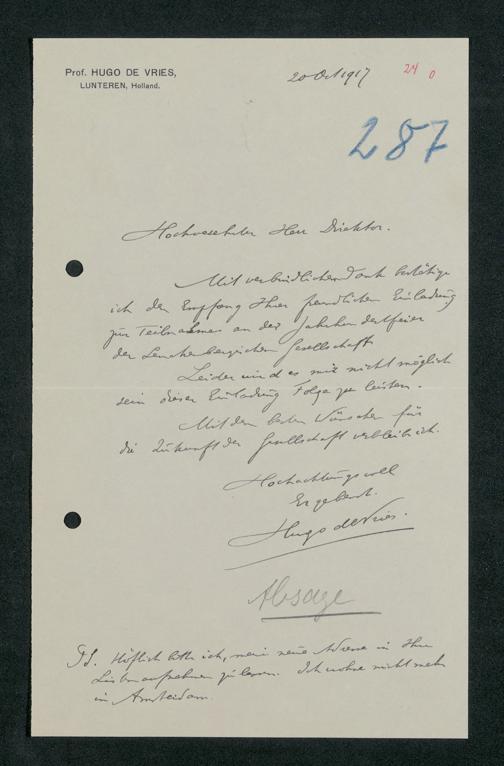 Prof. HUGO DE VRIES,
LUNTEREN, Holland.
20 Oct 1917
24 0
287
Hochgeehrter Herr Direktor.
Mit verbindlichem Dank bestätige
ich den Empfang Ihrer freundlichen Einladung
zur Teilnahme an der Jahrhundertfeier
der Senckenbergischen Gesellschaft
Leider wird es mir nicht möglich
sein dieser Einladung Folge zu leisten.
Mit den besten Wünschen für
die Zukunft der Gesellschaft verbleibe ich.
Hochachtungsvoll
Ergebenst.
Hugo de Vries.
Absage
PS. Höflich bitte ich, meine neue Adresse in Ihre
Listen aufnehmen zu lassen. Ich wohne nicht mehr
in Amsterdam.